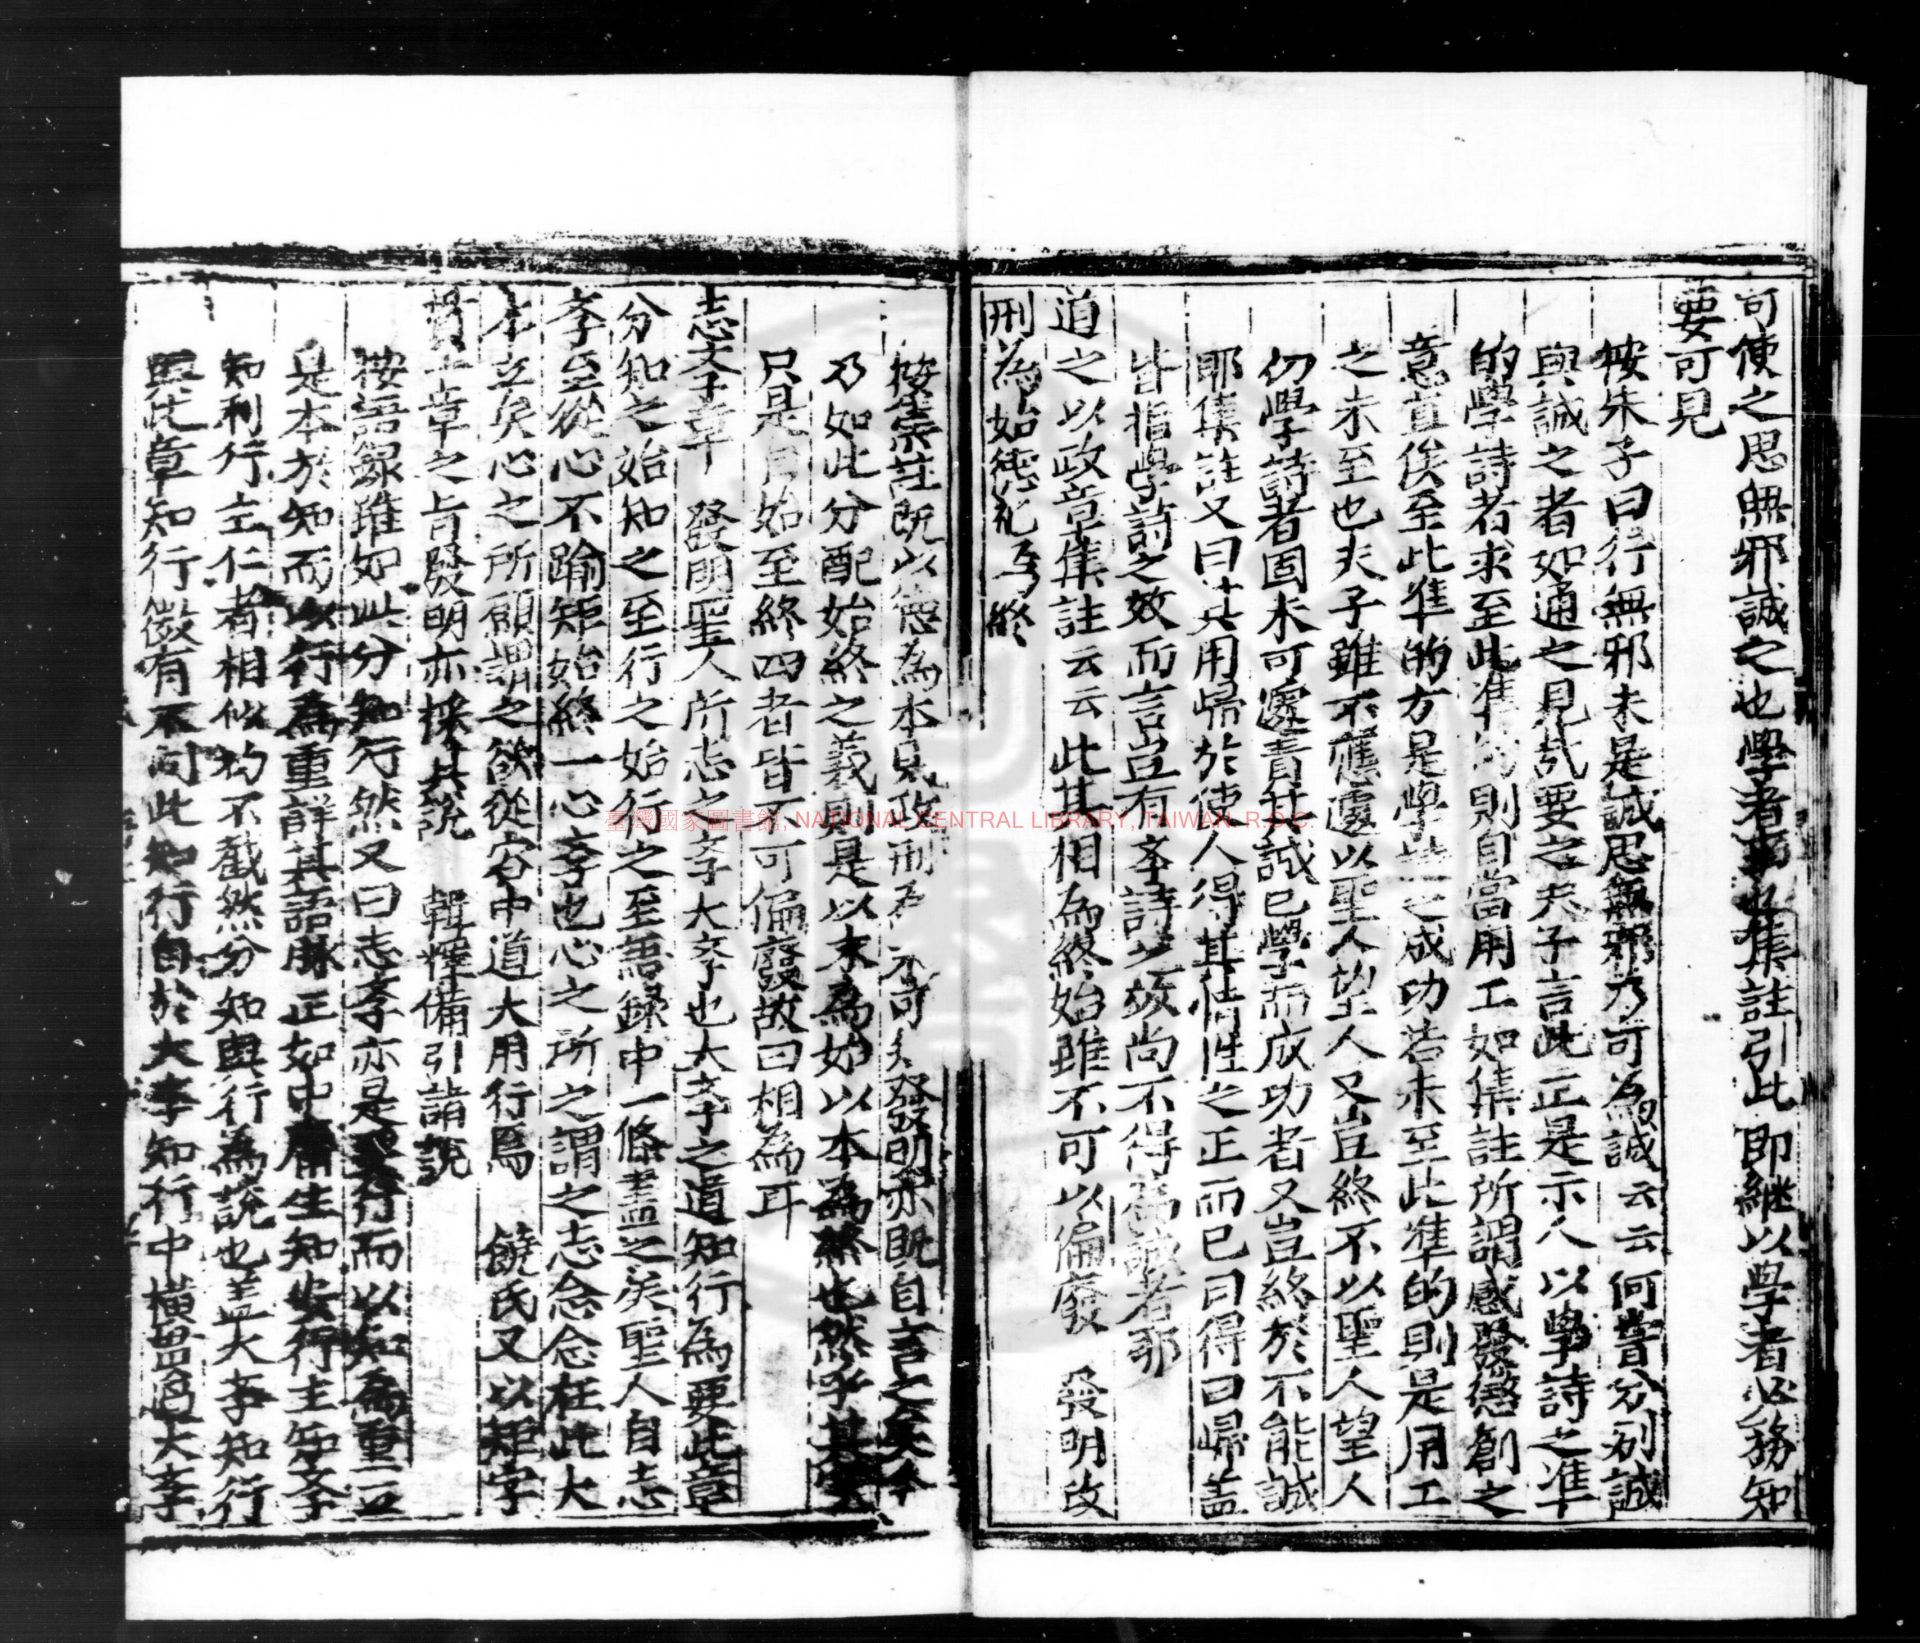 可使之思無邪誠之也學者事也集註引此即継以學者必務知
要可見
按朱子曰行無邪未是誠思無邪乃可為誠云云何嘗分别誠
與誠之者如通之見哉要之夫子言此正是示人以學詩之準
的學詩者求至此準的則自當用工如集註所謂感發懲創之
意直俟至此準的方是學詩之成功若未至此準的則是用工
之未至也夫子雖不應遽以聖人望人又豈終不以聖人望人
初學詩者固未可遽責其誠已學而成功者又豈終於不能誠
耶集註又曰其用歸於使人得其情性之正而已曰得曰歸盖
皆指學詩之效而言豈有斈詩之效尚不得為誠者耶
道之以政章集註云云此其相為終始雖不可以偏廢　發明政
刑為始德礼為終
按集註既以德為本見政刑為末可知發明亦既自言之矣今
乃如此分配始終之義則是以末為始以本為終也然乎其實
只是自始至終四者皆不可偏廢故曰相為耳
志斈章　發明聖人所志之斈大斈也大斈之道知行為要此章
分知之始知之至行之始行之至語録中一條盡之矣聖人自志
斈至從心不踰矩始終一心斈也心之所之謂之志念念在此大
本立矣心之所願謂之欲從容中道大用行焉　饒氏又以矩字
貫一章之旨發明亦採其説　輯釋備引諸説
按語録雖如此分知行然又曰志斈亦是要行而以知為重立
是本於知而以行為重詳其語脉正如中庸生知安行主知斈
知利行主仁者相似初不截然分知與行為說也盖大斈知行
與此章知行微有不同此知行自於大斈知行中横貫過大斈
臺灣國家圖書館, NATIONAL CENTRAL LIBRARY, TAIWAN, R.O.C.